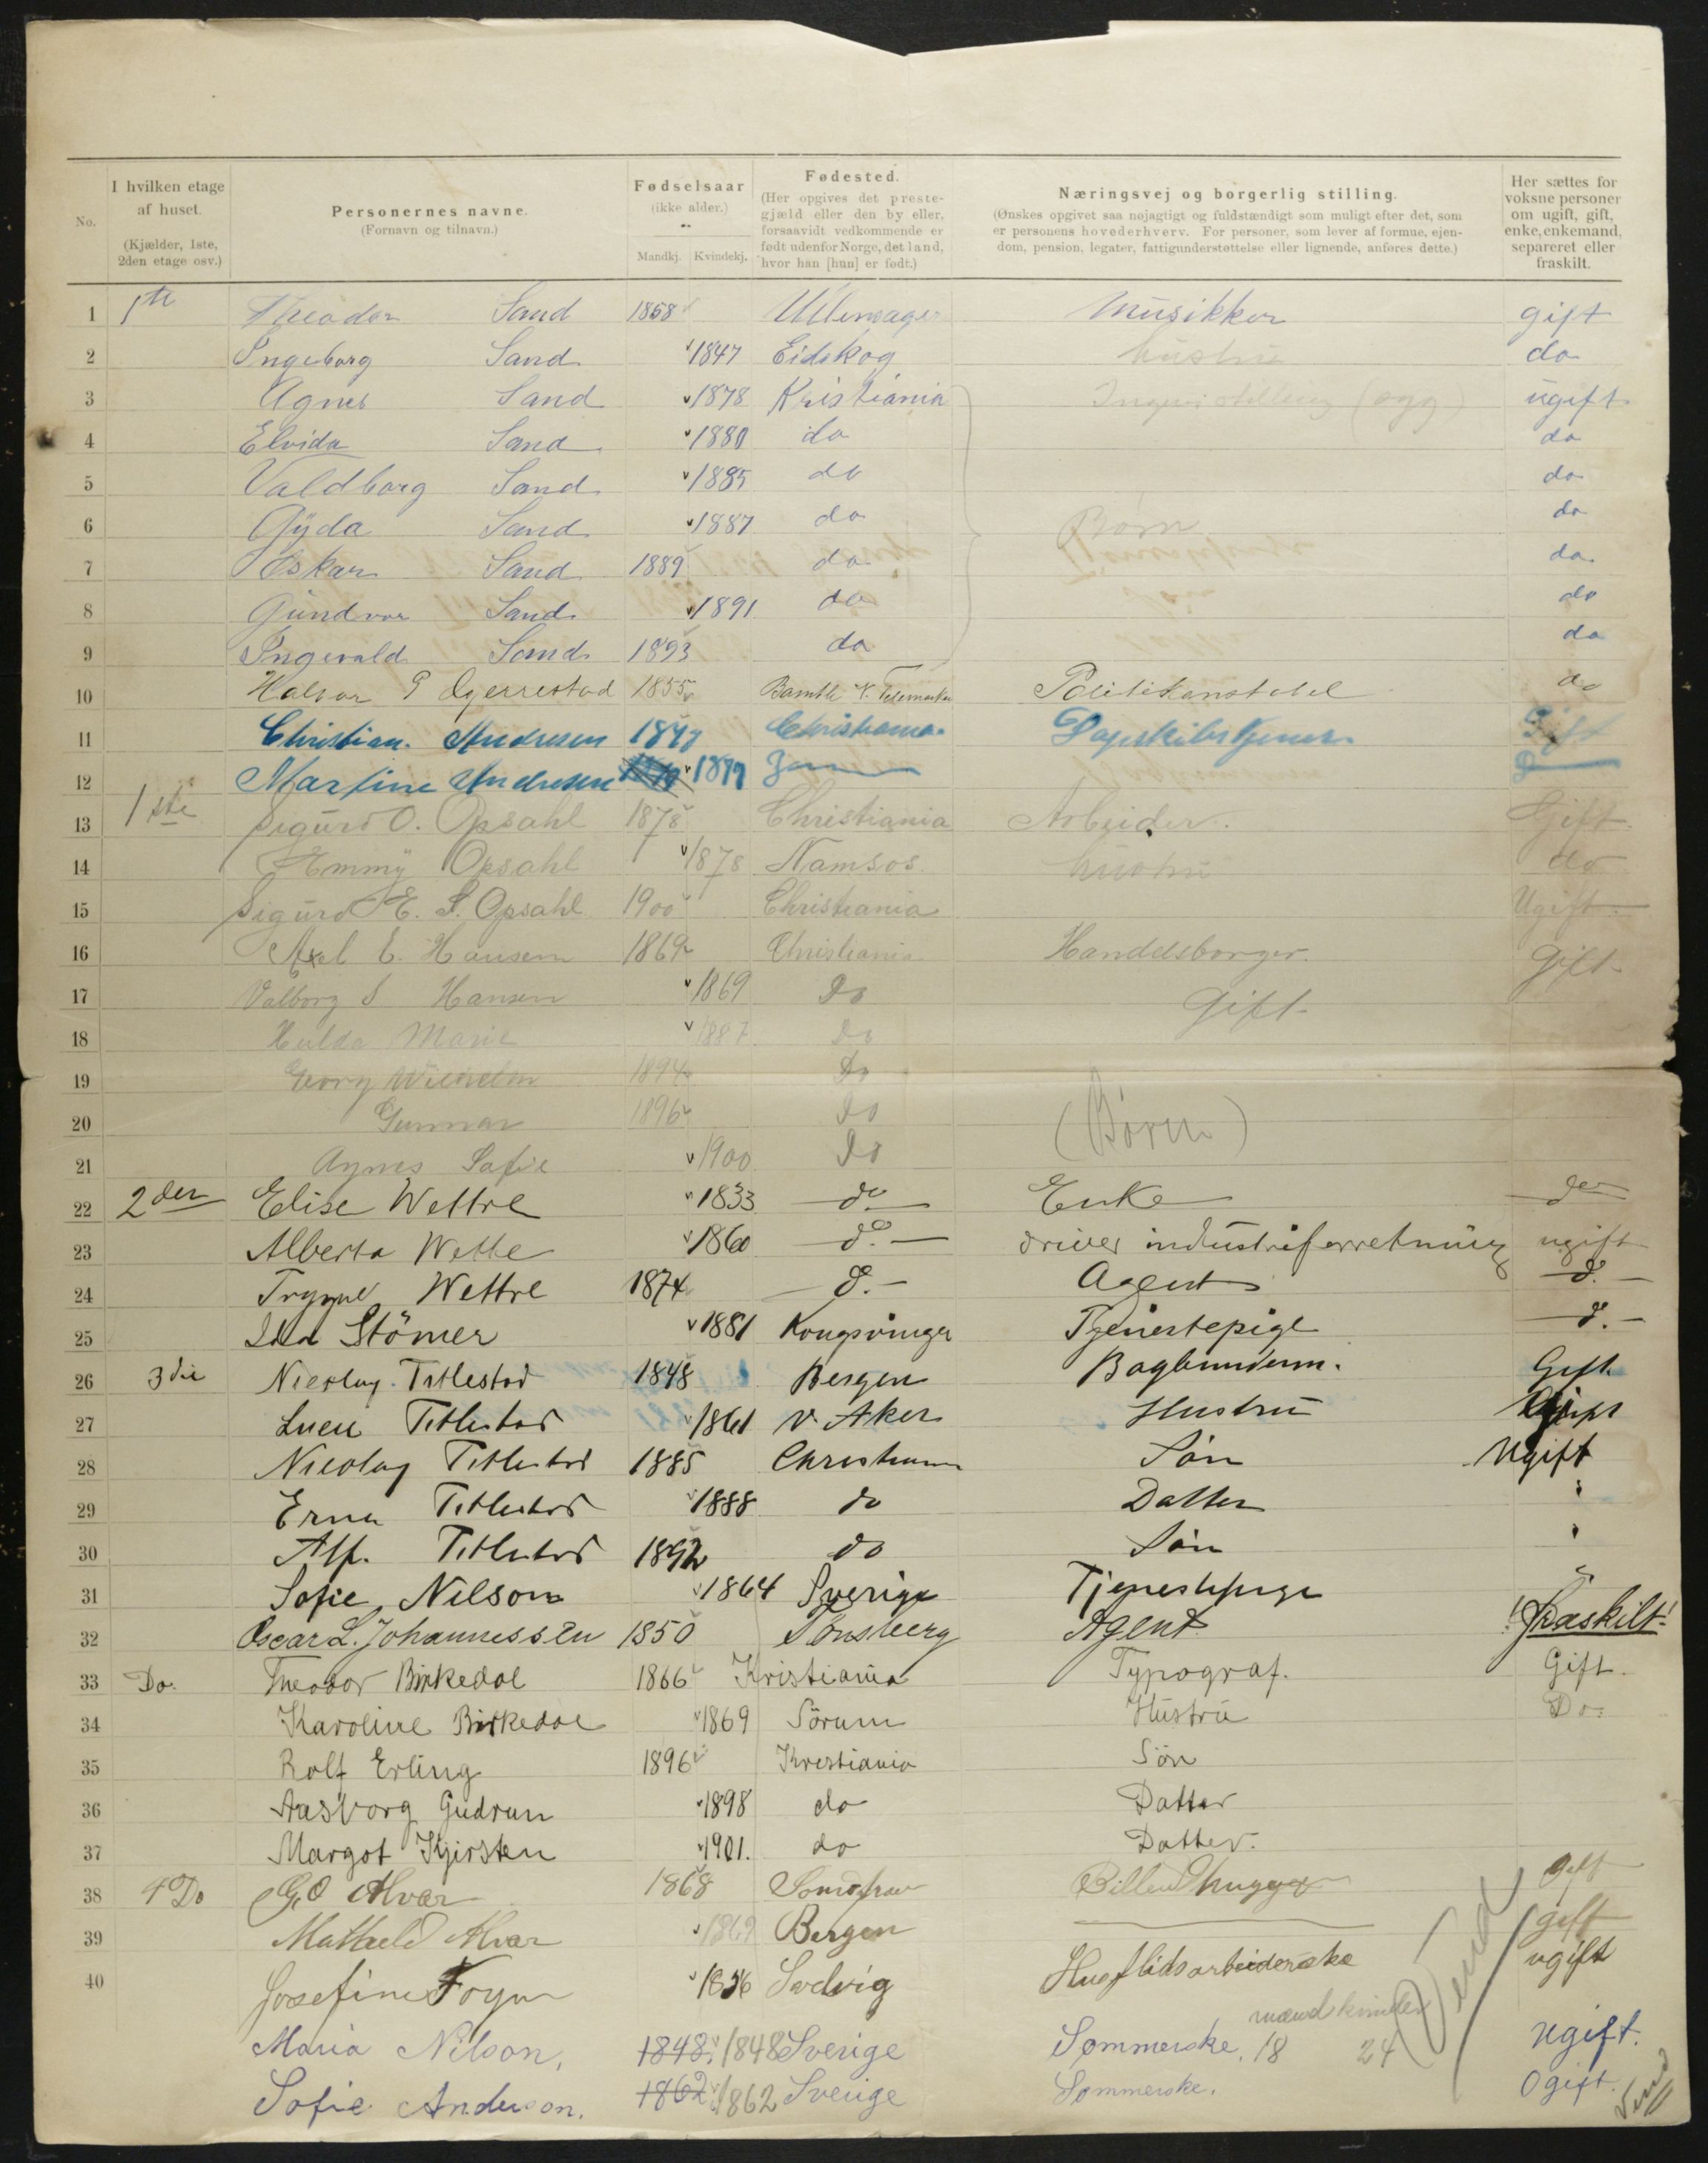 No.
I hvilken etage af huset. (Kjælder, 1ste, 2den etage osv.)
Personernes navne. (Fornavn og tilnavn.)
Fødselsaar (ikke alder.) Mandkj. Kvindekj.
Fødested. (Her opgives det prestegjæld eller den by eller, forsaavidt vedkommende er født udenfor Norge, det land, hvor han [hun] er født.)
Næringsvej og borgerlig stilling. (Ønskes opgivet saa nøjagtigt og fuldstændigt som muligt efter det, som er personens hovederhverv. For personer, som lever af formue, ejendom, pension, legater, fattigunderstøttelse eller lignende, anføres dette.)
Her sættes for voksne personer om ugift, gift, enke, enkemand, separeret eller fraskilt.
1 1ste Theodor Sand 1868 Ullensager Musikker gift
2 Ingeborg Sand 1847 Eidskog hustru do
3 Agnes Sand 1878 Kristiania Ingen stilling (syg) ugift
4 Elvida Sand 1880 do do
5 Valdborg Sand 1885 do do
6 Gyda Sand 1887 do Børn do
7 Oskar Sand 1889 do do
8 Gundvor Sand 1891 do do
9 Ingevald Sand 1893 do do
10 Halvor P 1855 Bamble Politikonstabel do
11 Christian Andresen Christiania Gift
12 Martine Andresen
13 1ste Sigurd O. Opsahl 1878 Christiania Arbeider. Gift
14 Emmy Opsahl 1878 Namsos hustru do
15 Sigurd E. S. Opsahl 1900 Christiania Ugift
16 Axel E. Hansen 1869 Christiania Handelsborger. Gift
17 Valborg S Hansen 1869 Do Gift
18 Hulda Marie 1887 Do
19 Georg Wilhelm 1894 Do
20 Gunnar 1896 Do (Børn)
21 Agnes Sofie 1900 Do
22 2den Elise Wettre 1833 do Enke do
23 Alberta Wettre 1860 do driver industriforretning ugift
24 Trygve Wettre 1874 do Agent do
25 Störner 1881 Kongsvinger Tjenestepige do
26 3die Nicolay Titlestad 1848 Bergen Bogbinderm. Gift
27 Titlestad 1861 v. Aker Hustru Gift
28 Nicolay Titlestad 1885 Christiania Søn Ugift
29 Erna Titlestad 1888 do Datter "
30 Alf. Titlestad 1892 do Søn "
31 Sofie Nilson 1864 Sverige Tjenestepige "
32 Oscar L. Johannessen 1850 Tønsberg Agent !fraskilt!
33 Do. Theodor Birkedal 1866 Kristiania Typograf. Gift.
34 Karoline Birkedal 1869 Sörum Hustru Do.
35 Rolf Erling 1896 Kristiania Sön
36 Aasborg Gudrun 1898 do Datter
37 Margot Kjirsten 1901. do Datter.
38 4 Do G. O Alvær 1868 Billedhugger gift
39 Mathild Alvær 1869 Bergen gift
40 Josefine Foyn 1856 Husflidsarbeiderske ugift
Maria Nilson, 1848 1848 Sverige Sømmerske. Ugift.
mænd kvinder
18 24
Sofie Anderson. 1862 1862 Sverige Sømmerske. Ugift.
Vend
Vend